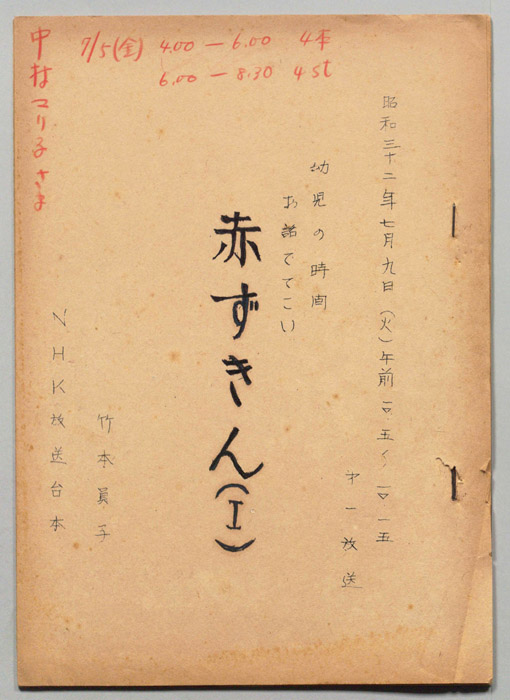 7/5(金) 4.00 — 6.00 4本
6.00 — 8.30 4st
中村マリ子さま
昭和三十二年七月九日(火)午前一〇・五〜一〇・一五
才一放送
幼児の時间
お話でてこい
赤ずきん(I)
竹本員子
NHK放送台本